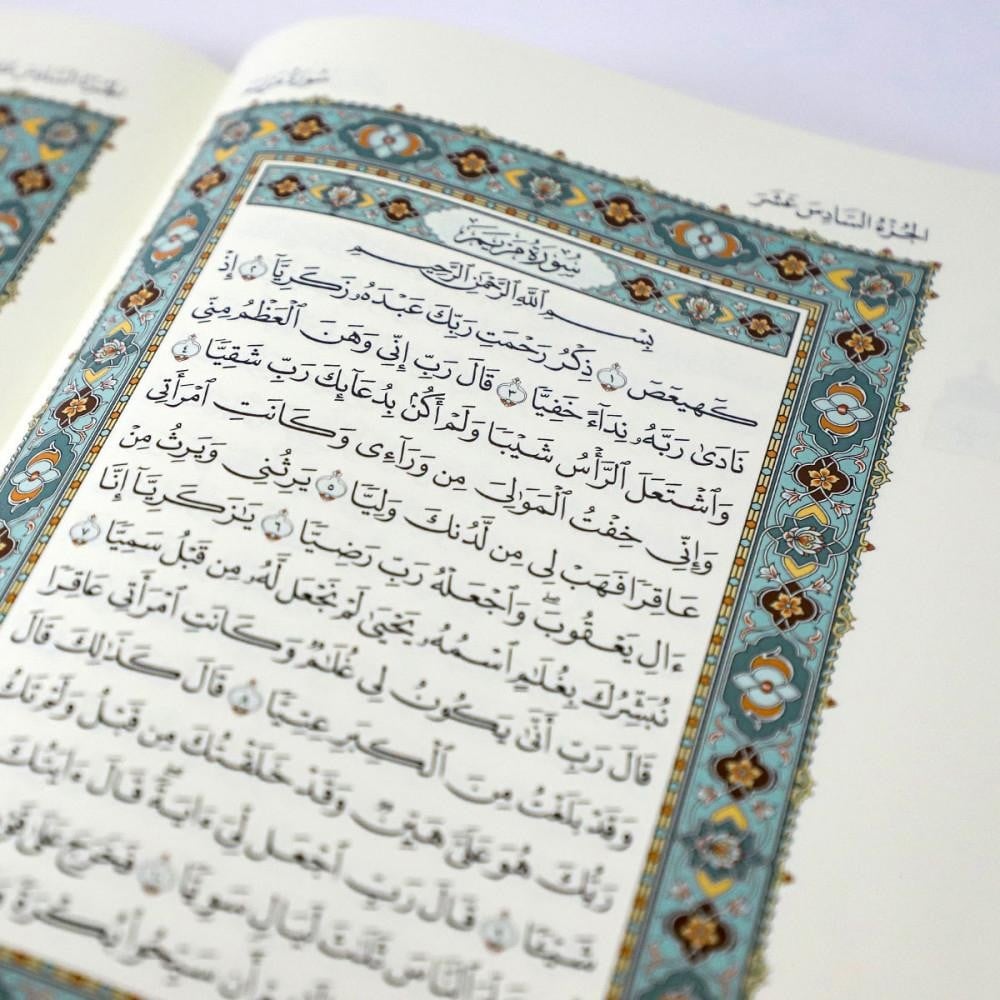 سُورَةُ مَرْيَمَ
الجُزْءُ السَّادِسَ عَشَرَ
سُورَةُ مَرْيَمَ
بِسْمِ ٱللَّهِ ٱلرَّحْمَٰنِ ٱلرَّحِيمِ
كٓهيعٓصٓ ١ ذِكْرُ رَحْمَتِ رَبِّكَ عَبْدَهُۥ زَكَرِيَّآ ٢ إِذْ
نَادَىٰ رَبَّهُۥ نِدَآءً خَفِيًّا ٣ قَالَ رَبِّ إِنِّى وَهَنَ ٱلْعَظْمُ مِنِّى
وَٱشْتَعَلَ ٱلرَّأْسُ شَيْبًا وَلَمْ أَكُنۢ بِدُعَآئِكَ رَبِّ شَقِيًّا ٤
وَإِنِّى خِفْتُ ٱلْمَوَٰلِىَ مِن وَرَآءِى وَكَانَتِ ٱمْرَأَتِى
عَاقِرًا فَهَبْ لِى مِن لَّدُنكَ وَلِيًّا ٥ يَرِثُنِى وَيَرِثُ مِنْ
ءَالِ يَعْقُوبَ ۖ وَٱجْعَلْهُ رَبِّ رَضِيًّا ٦ يَٰزَكَرِيَّآ إِنَّا
نُبَشِّرُكَ بِغُلَٰمٍ ٱسْمُهُۥ يَحْيَىٰ لَمْ نَجْعَل لَّهُۥ مِن قَبْلُ سَمِيًّا ٧
قَالَ رَبِّ أَنَّىٰ يَكُونُ لِى غُلَٰمٌ وَكَانَتِ ٱمْرَأَتِى عَاقِرًا
وَقَدْ بَلَغْتُ مِنَ ٱلْكِبَرِ عِتِيًّا ٨ قَالَ كَذَٰلِكَ قَالَ
رَبُّكَ هُوَ عَلَىَّ هَيِّنٌ وَقَدْ خَلَقْتُكَ مِن قَبْلُ وَلَمْ تَكُ
شَيْـًٔا ٩ قَالَ رَبِّ ٱجْعَل لِّىٓ ءَايَةً ۚ قَالَ ءَايَتُكَ
ٱلنَّاسَ ثَلَٰثَ لَيَالٍ سَوِيًّا ١٠ فَخَرَجَ عَلَىٰ
أَن سَبِّحُوا۟ بُكْرَةً